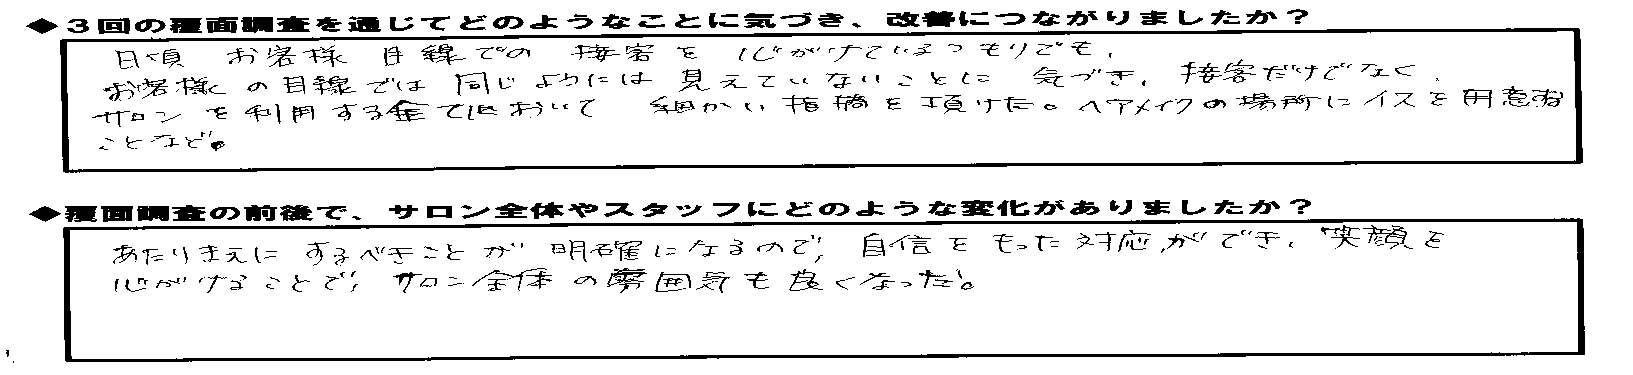 ◆３回の覆面調査を通じてどのようなことに気づき、改善につながりましたか？
日頃 お客様 目線での 接客を 心がけているつもりでも、
お客様の目線では同じようには見えていないことに 気づき、接客だけでなく、
サロンを利用する全てにおいて 細かい指摘を頂けた。ヘアメイクの場所にイスを用意する
ことなど。
◆覆面調査の前後で、サロン全体やスタッフにどのような変化がありましたか？
あたりまえにするべきことが明確になるので、自信をもった対応ができ、笑顔を
心がけることで、サロン全体の雰囲気も良くなった！。